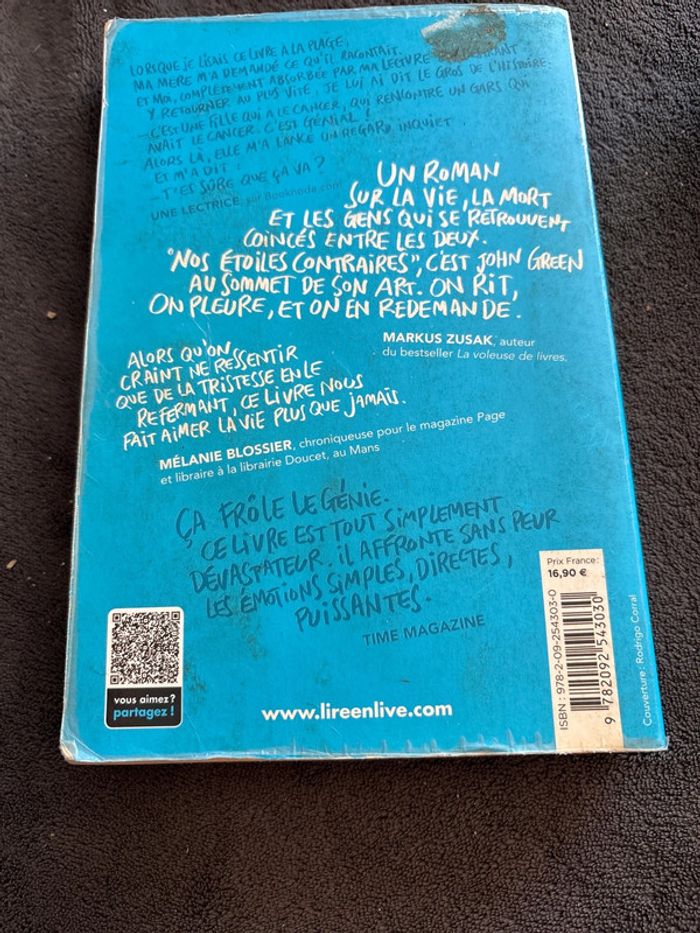 LORSQUE JE LISAIS CE LIVRE À LA PLAGE,
MA MÈRE M'A DEMANDÉ CE QU'IL RACONTAIT.
ET MOI, COMPLÈTEMENT ABSORBÉE PAR MA LECTURE
Y RETOURNER AU PLUS VITE, JE LUI AI DIT LE GROS DE L'HISTOIRE:
— C'EST UNE FILLE QUI A LE CANCER, QUI RENCONTRE UN GARS QUI
AVAIT LE CANCER. C'EST GÉNIAL !
ALORS LÀ, ELLE M'A LANCÉ UN REGARD INQUIET
ET M'A DIT :
— T'ES SÛRE QUE ÇA VA ?
UNE LECTRICE, sur Booknode.com
UN ROMAN
SUR LA VIE, LA MORT
ET LES GENS QUI SE RETROUVENT
COINCÉS ENTRE LES DEUX.
"NOS ÉTOILES CONTRAIRES", C'EST JOHN GREEN
AU SOMMET DE SON ART. ON RIT,
ON PLEURE, ET ON EN REDEMANDE.
MARKUS ZUSAK, auteur
du bestseller La voleuse de livres.
ALORS QU'ON
CRAINT NE RESSENTIR
QUE DE LA TRISTESSE EN LE
REFERMANT, CE LIVRE NOUS
FAIT AIMER LA VIE PLUS QUE JAMAIS.
MÉLANIE BLOSSIER, chroniqueuse pour le magazine Page
et libraire à la librairie Doucet, au Mans
ÇA FRÔLE LE GÉNIE.
CE LIVRE EST TOUT SIMPLEMENT
DÉVASTATEUR. IL AFFRONTE SANS PEUR
LES ÉMOTIONS SIMPLES, DIRECTES,
PUISSANTES.
TIME MAGAZINE
vous aimez ?
partagez !
www.lireenlive.com
Prix France :
16,90 €
ISBN : 978-2-09-254303-0
9 782092 543030
Couverture : Rodrigo Corral